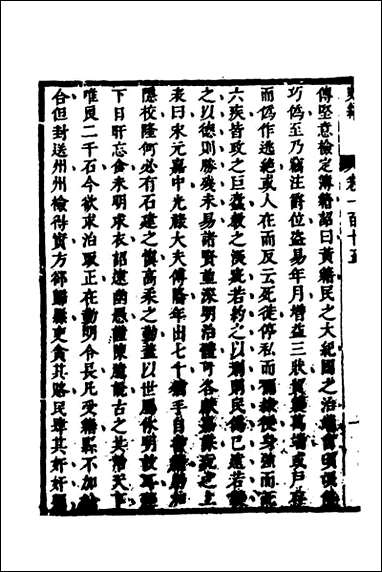 史纂
卷一百十五
傅堅意檢定簿籍詔曰黃籍民之大紀國之治端自頃氓俗
巧偽至乃竊注爵位盜易年月增益三狀貿襲萬端或戶存
而偽作逃絕或人在而反云死徒停私而隸役身強而云
六疾皆政之巨蠹教之深疵若約之以刑則民偽已遠若綏
之以德則勝殘未易諸賢並深明治體可各獻嘉謀虞玩之上
表曰宋元嘉中光祿大夫傅隆年出七十猶手自書籍躬加
隱校隆何必有石建之慎高柔之勤蓋以世屬休明故耳陛
下日旰忘食未明求衣詔逮幽愚謹陳遠說古之共治天下
唯良二千石今欲求治取正在勤明令長凡受籍縣不加檢
合但封送州州檢得實方卻歸縣吏貪其賂民肆其奸奸彌